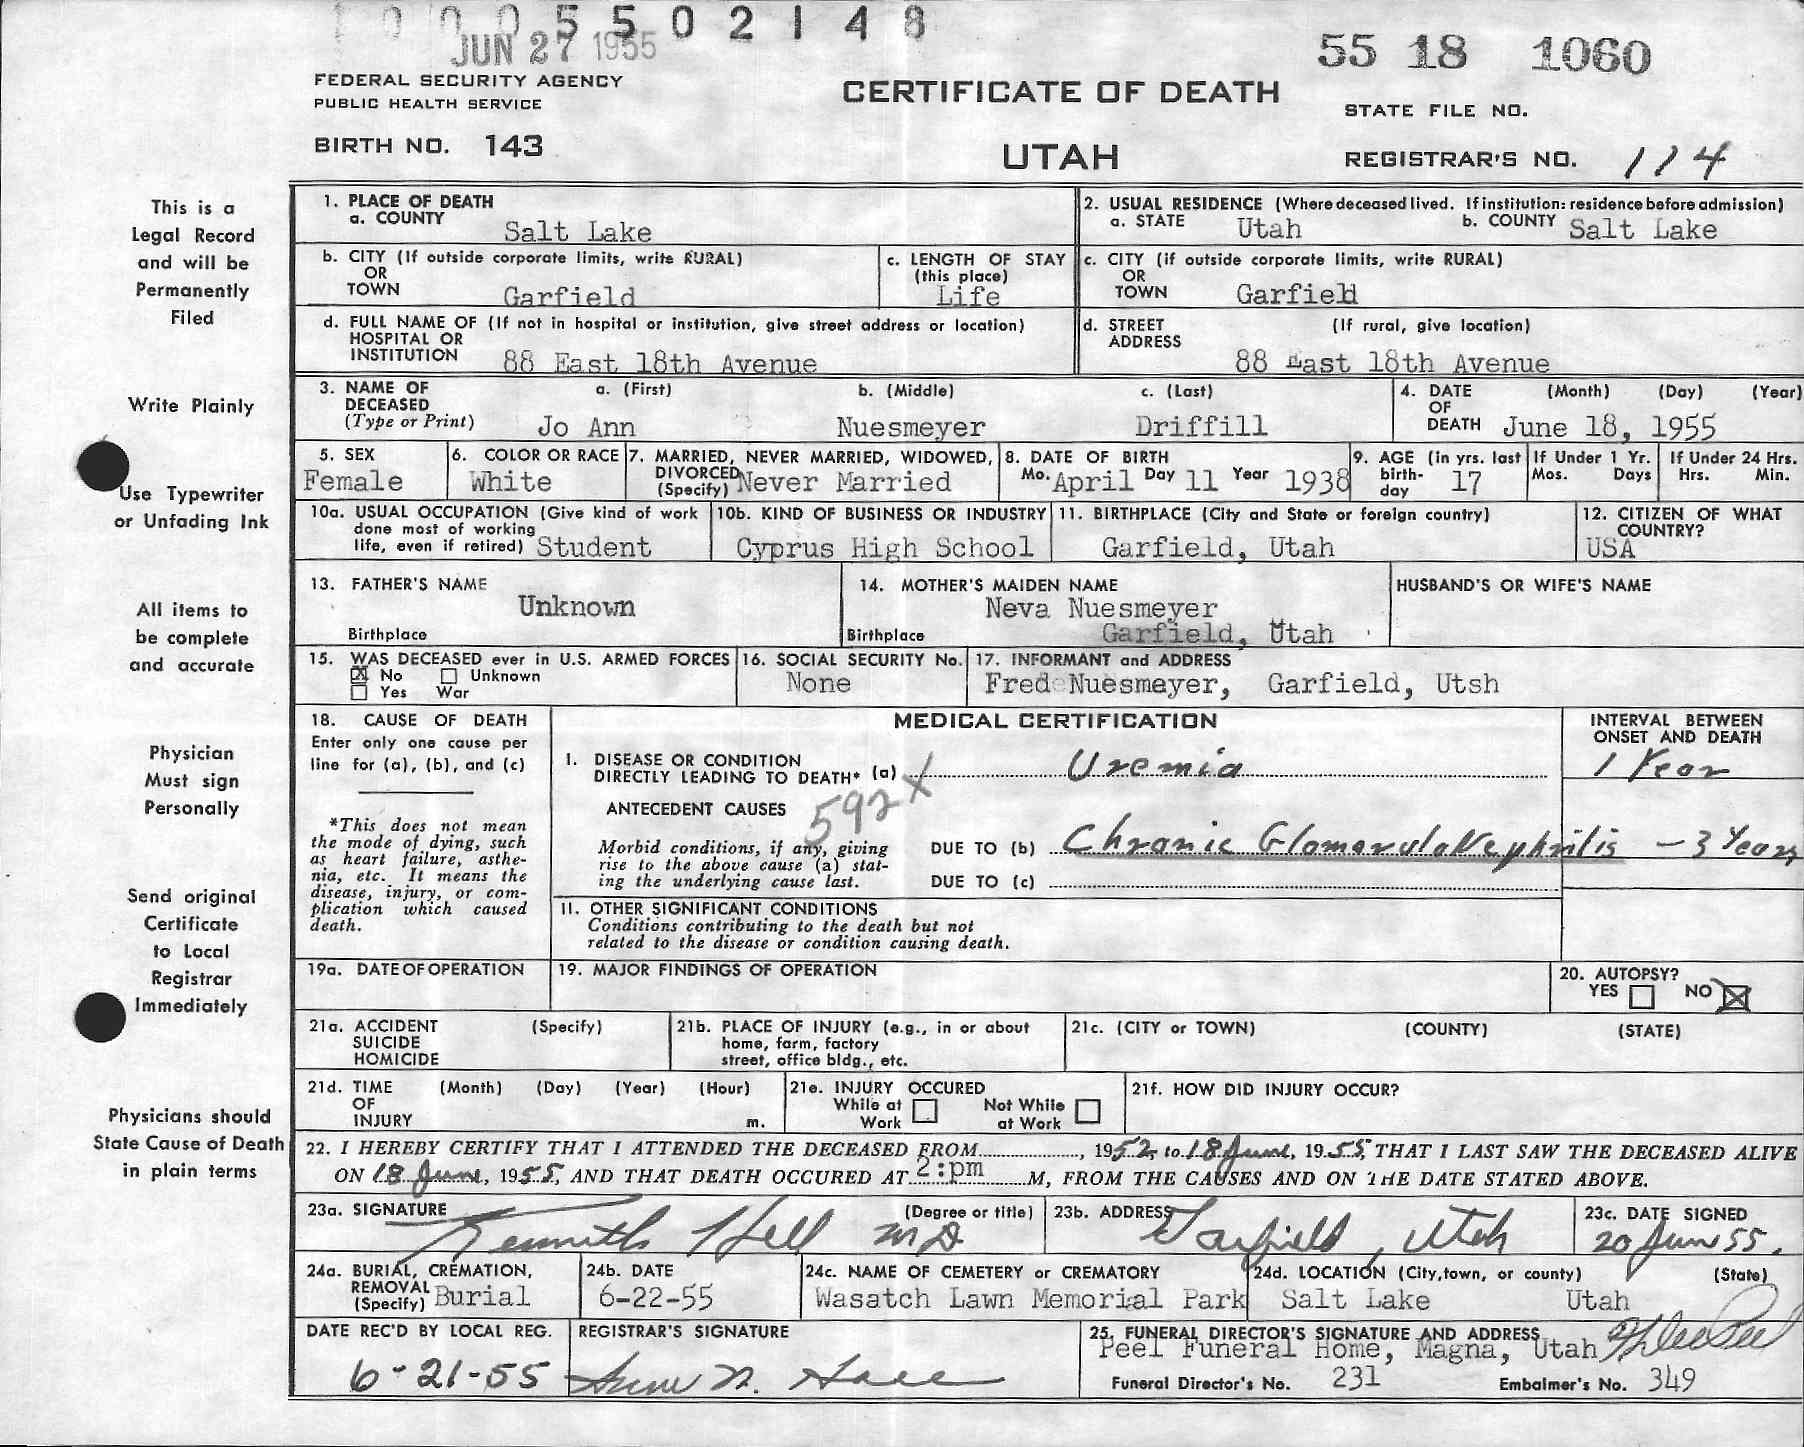 1 0 0 0 5 5 0 2 1 4 8
JUN 27 1955
55 18 1060
FEDERAL SECURITY AGENCY
PUBLIC HEALTH SERVICE
CERTIFICATE OF DEATH
STATE FILE NO.
BIRTH NO. 143
UTAH
REGISTRAR'S NO. 114
This is a
Legal Record
and will be
Permanently
Filed
Write Plainly
Use Typewriter
or Unfading Ink
All items to
be complete
and accurate
Physician
Must sign
Personally
Send original
Certificate
to Local
Registrar
Immediately
Physicians should
State Cause of Death
in plain terms
1. PLACE OF DEATH
a. COUNTY
Salt Lake
2. USUAL RESIDENCE (Where deceased lived. If institution: residence before admission)
a. STATE Utah b. COUNTY Salt Lake
b. CITY (If outside corporate limits, write RURAL)
OR
TOWN Garfield
c. LENGTH OF STAY
(this place)
Life
c. CITY (if outside corporate limits, write RURAL)
OR
TOWN Garfield
d. FULL NAME OF (If not in hospital or institution, give street address or location)
HOSPITAL OR
INSTITUTION 88 East 18th Avenue
d. STREET (If rural, give location)
ADDRESS
88 East 18th Avenue
3. NAME OF a. (First) b. (Middle) c. (Last)
DECEASED
(Type or Print) Jo Ann Nuesmeyer Driffill
4. DATE (Month) (Day) (Year)
OF
DEATH June 18, 1955
5. SEX
Female
6. COLOR OR RACE
White
7. MARRIED, NEVER MARRIED, WIDOWED,
DIVORCED
(Specify) Never Married
8. DATE OF BIRTH
Mo. April Day 11 Year 1938
9. AGE (in yrs. last
birth-
day 17
If Under 1 Yr.
Mos. Days
If Under 24 Hrs.
Hrs. Min.
10a. USUAL OCCUPATION (Give kind of work
done most of working
life, even if retired) Student
10b. KIND OF BUSINESS OR INDUSTRY
Cyprus High School
11. BIRTHPLACE (City and State or foreign country)
Garfield, Utah
12. CITIZEN OF WHAT
COUNTRY?
USA
13. FATHER'S NAME
Unknown
Birthplace
14. MOTHER'S MAIDEN NAME
Neva Nuesmeyer
Birthplace Garfield, Utah
HUSBAND'S OR WIFE'S NAME
15. WAS DECEASED ever in U.S. ARMED FORCES
No Unknown
Yes War
16. SOCIAL SECURITY No.
None
17. INFORMANT and ADDRESS
Fred Nuesmeyer, Garfield, Utsh
18. CAUSE OF DEATH
Enter only one cause per
line for (a), (b), and (c)
*This does not mean
the mode of dying, such
as heart failure, asthe-
nia, etc. It means the
disease, injury, or com-
plication which caused
death.
MEDICAL CERTIFICATION
INTERVAL BETWEEN
ONSET AND DEATH
I. DISEASE OR CONDITION
DIRECTLY LEADING TO DEATH* (a) Uremia 1 Year
ANTECEDENT CAUSES
592X
Morbid conditions, if any, giving
rise to the above cause (a) stat-
ing the underlying cause last.
DUE TO (b) Chronic Glomerulonephritis - 3 Years
DUE TO (c)
II. OTHER SIGNIFICANT CONDITIONS
Conditions contributing to the death but not
related to the disease or condition causing death.
19a. DATE OF OPERATION
19. MAJOR FINDINGS OF OPERATION
20. AUTOPSY?
YES NO
21a. ACCIDENT (Specify)
SUICIDE
HOMICIDE
21b. PLACE OF INJURY (e.g., in or about
home, farm, factory
street, office bldg., etc.
21c. (CITY or TOWN) (COUNTY) (STATE)
21d. TIME (Month) (Day) (Year) (Hour)
OF
INJURY m.
21e. INJURY OCCURED
While at Not While
Work at Work
21f. HOW DID INJURY OCCUR?
22. I HEREBY CERTIFY THAT I ATTENDED THE DECEASED FROM , 1952 to 18 June, 1955, THAT I LAST SAW THE DECEASED ALIVE
ON 18 June, 1955, AND THAT DEATH OCCURED AT 2:pm M, FROM THE CAUSES AND ON THE DATE STATED ABOVE.
23a. SIGNATURE (Degree or title)
Kenneth Hill MD
23b. ADDRESS
Garfield, Utah
23c. DATE SIGNED
20 Jun 55.
24a. BURIAL, CREMATION,
REMOVAL
(Specify) Burial
24b. DATE
6-22-55
24c. NAME OF CEMETERY or CREMATORY
Wasatch Lawn Memorial Park
24d. LOCATION (City, town, or county) (State)
Salt Lake Utah
DATE REC'D BY LOCAL REG.
6-21-55
REGISTRAR'S SIGNATURE
25. FUNERAL DIRECTOR'S SIGNATURE AND ADDRESS
Peel Funeral Home, Magna, Utah
Funeral Director's No. 231 Embalmer's No. 349